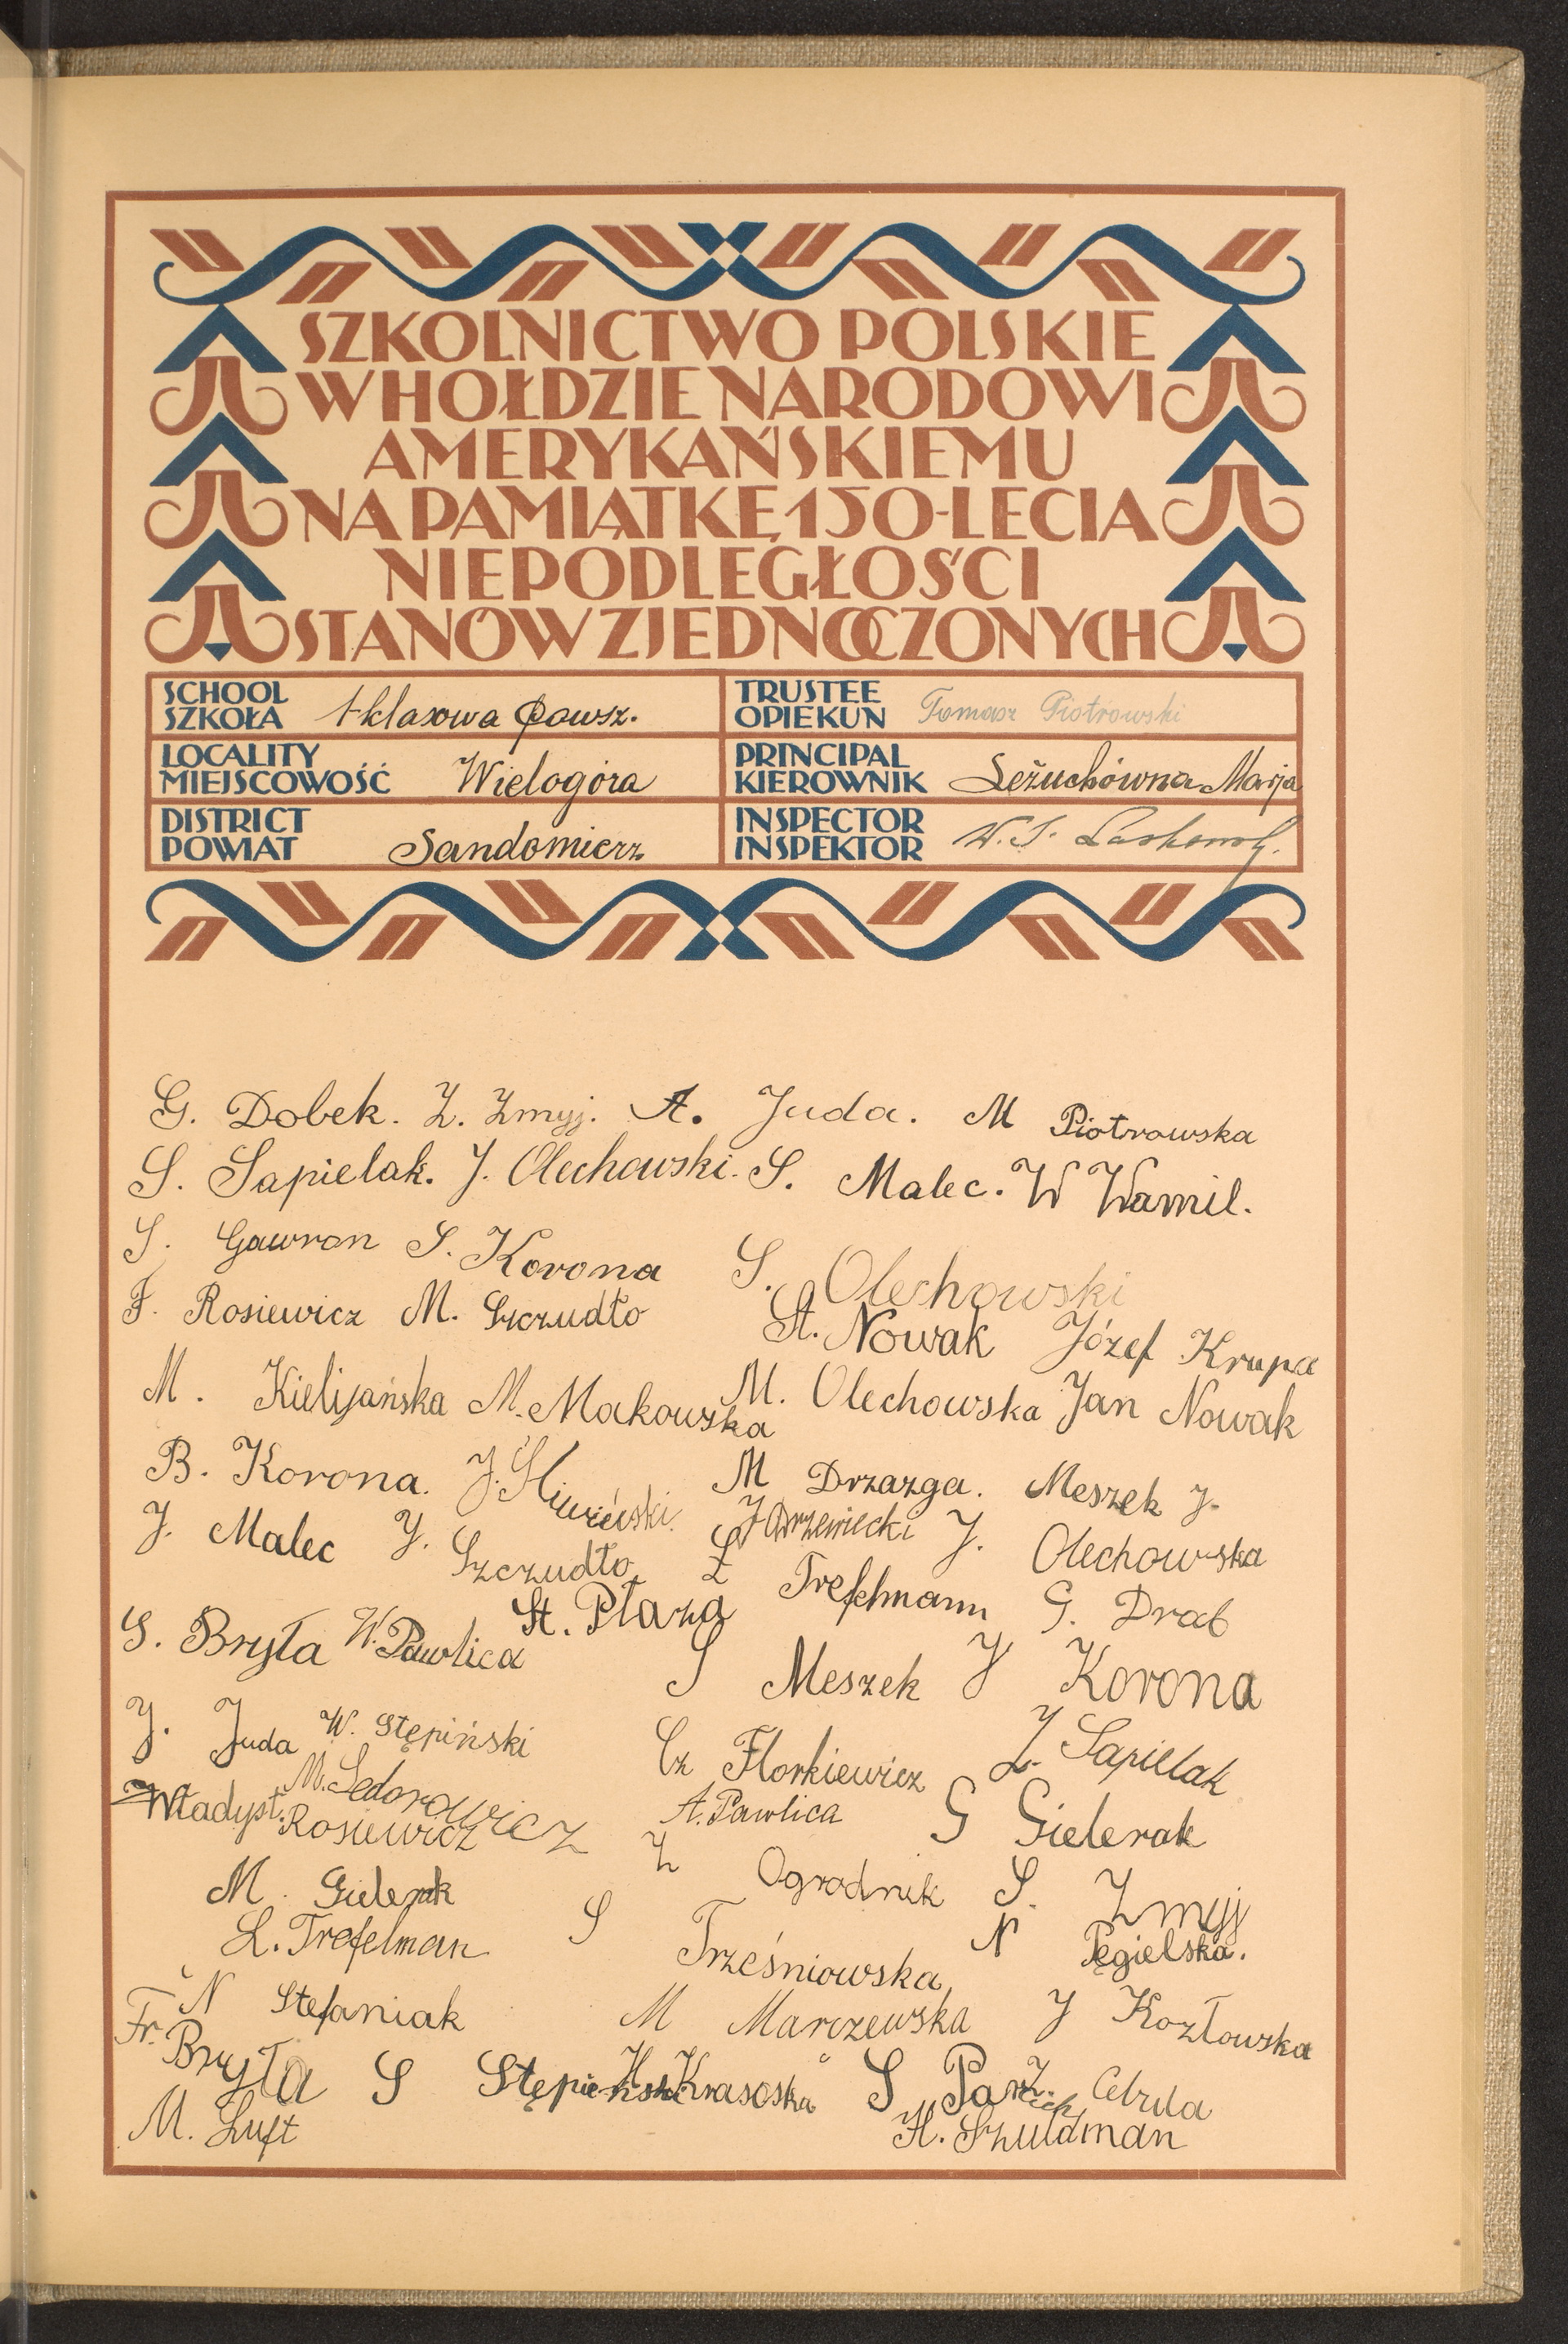 SZKOLNICTWO POLSKIE
W HOŁDZIE NARODOWI
AMERYKAŃSKIEMU
NA PAMIĄTKĘ 150-LECIA
NIEPODLEGŁOŚCI
STANÓW ZJEDNOCZONYCH
SCHOOL
SZKOŁA 1-klasowa Powsz.
TRUSTEE
OPIEKUN Tomasz Piotrowski
LOCALITY
MIEJSCOWOŚĆ Wielogóra
PRINCIPAL
KIEROWNIK Leżuchówna Marja
DISTRICT
POWIAT Sandomierz
INSPECTOR
INSPEKTOR W. S.
G. Dobek. Z. Zmyj. A. Juda. M Piotrowska
S. Sapielak. J. Olechowski. S. Malec. W Wamil.
S. Gawron S. Korona S. Olechowski
F. Rosiewicz M. Szczudło St. Nowak Józef Krupa
M. Kielijańska M. Makowska M. Olechowska Jan Nowak
B. Korona. J. M Drzazga. Meszek J.
J. Malec J. Szczudło J. Olechowska
St. Płaza Z Trefelmann G. Drab
S. Bryła W. Pawlica S Meszek J Korona
J. Juda W. Stępiński Cz Florkiewicz J. Sapielak
M. Sedorowicz
Władysł. Rosiewicz A. Pawlica G Gielerak
M. Gielerak Z Ogrodnik S. Zmyj
L. Trefelman S Trześniowska N Pęgielska.
N Stefaniak M Marczewska J Kozłowska
Fr. Bryła S Stępieński H. Krasoska S Z. Cebula
M. Luft H. Szuldman